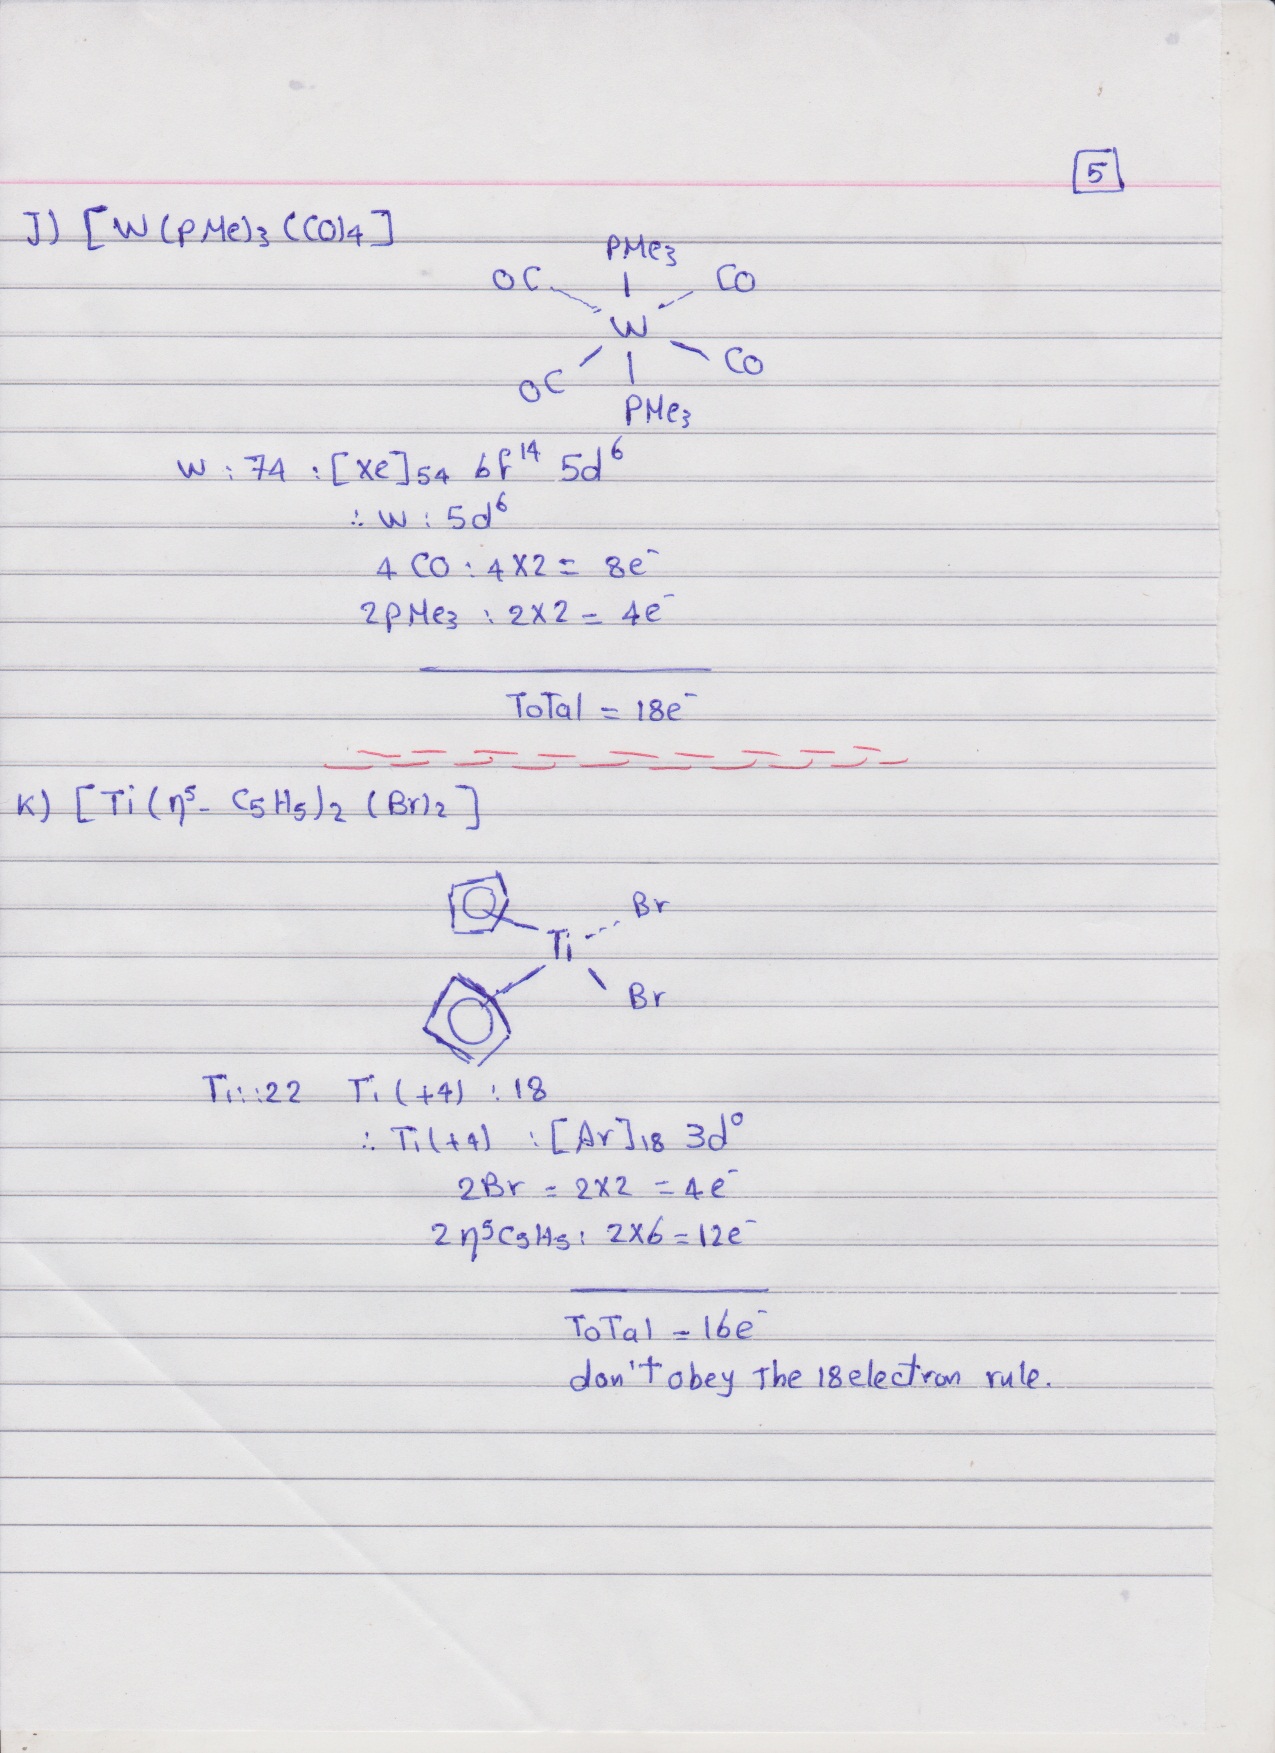 5
J) [W(PMe)3(CO)4]
PMe3
OC CO
W
OC CO
PMe3
W : 74 : [Xe]54 6f14 5d6
∴ W : 5d6
4 CO : 4x2 = 8e-
2PMe3 : 2x2 = 4e-
ToTal = 18e-
K) [Ti(η5- C5H5)2 (Br)2]
Br
Ti
Br
Ti::22 Ti(+4) : 18
∴ Ti(+4) : [Ar]18 3d0
2Br = 2x2 = 4e-
2η5C5H5: 2x6 = 12e-
ToTal = 16e-
don't obey The 18 electron rule.